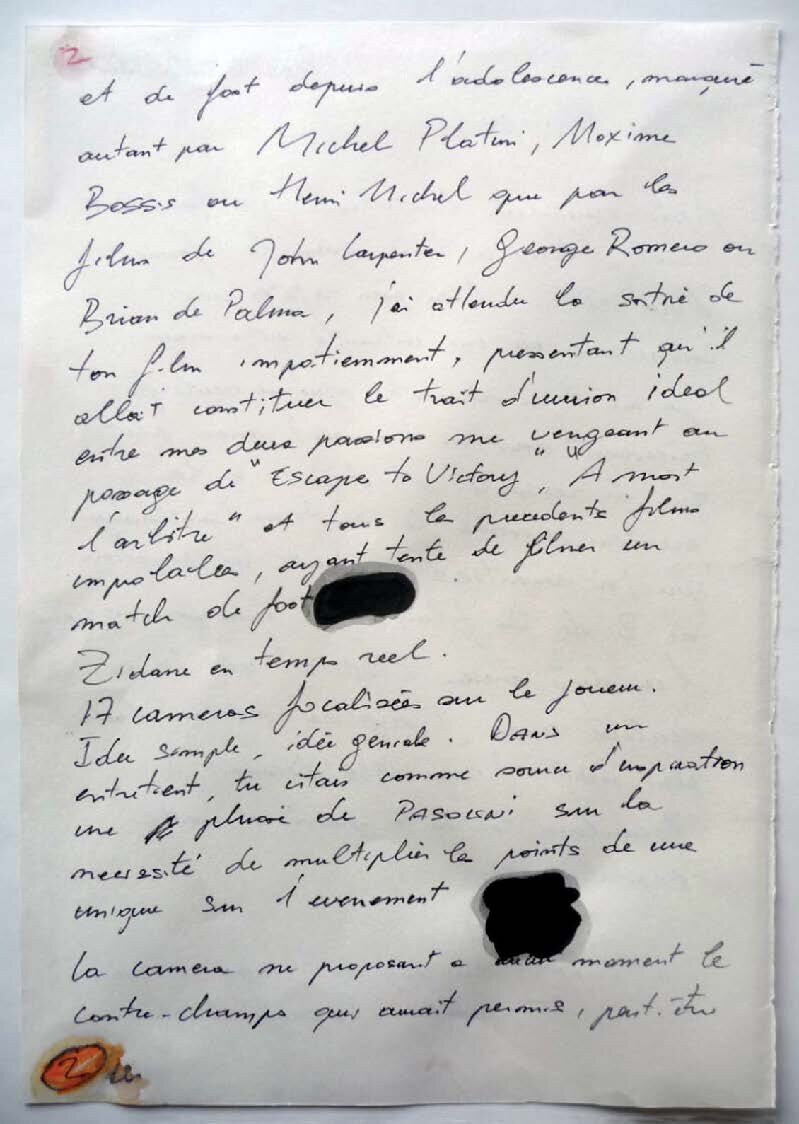 2
et de foot depuis l'adolescence, marqué
autant par Michel Platini, Maxime
Bossis ou Henri Michel que par les
films de John Carpenter, George Romero ou
Brian de Palma, j'ai attendu la sortie de
ton film impatiemment, pressentant qu'il
allait constituer le trait d'union idéal
entre mes deux passions me vengeant au
passage de "Escape to Victory", "A mort
l'arbitre" et tous les precedents films
improbables, ayant tenté de filmer un
match de foot
Zidane en temps reel.
17 cameras focalisées sur le joueur.
Idée simple, idée geniale. Dans un
entretient, tu citais comme source d'inspiration
une phrase de PASOLINI sur la
necessité de multiplier les points de vue
unique sur l'evenement
La camera ne proposant a aucun moment le
contre-champs qui aurait permis, peut-être
2